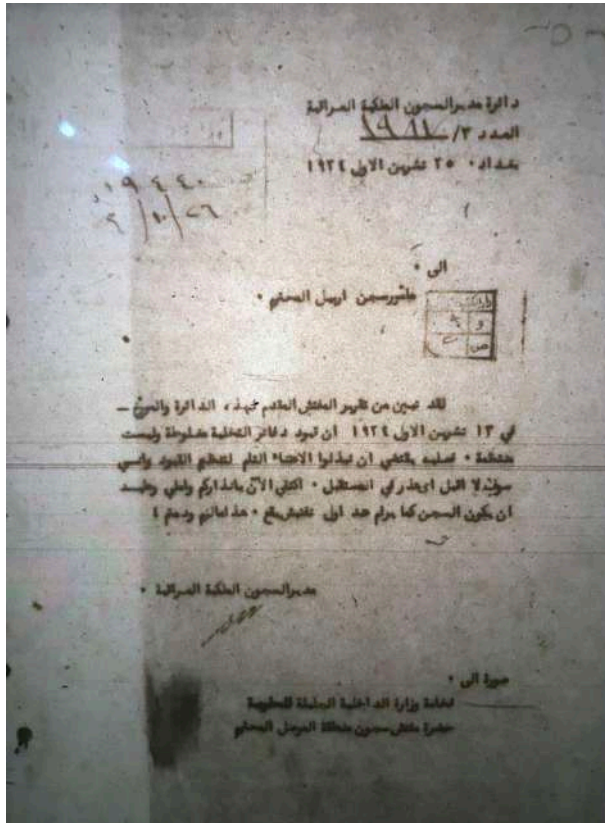 دائرة مدير السجون الملكية العراقية
العدد ٣/
بغداد ٠ ٢٥ تشرين الاول ١٩٢٤
١٩٤٤٠
٢٦/١٠/
الى ٠
مأمور سجن اربيل المحترم ٠
و
ص
لقد تبين من تقرير المفتش المقدم لهذه الدائرة والمؤرخ –
في ١٣ تشرين الاول ١٩٢٤ ان قيود دفاتر التخلية مغلوطة وليست
منتظمة ٠ فعليه يقتضي ان تبذلوا الاعتناء التام لتنظيم القيود وانني
سوف لا اقبل اي عذر في المستقبل ٠ اكتفي الآن بانذاركم واملي وطيد
ان يكون السجن كما يرام عند اول تفتيش يقع ٠ هذا مالزم ودمتم ٤
مدير السجون الملكية العراقية ٠
صورة الى ٠
فخامة وزارة الداخلية الجليلة للمعلومية
حضرة مفتش سجون منطقة الموصل المحترم